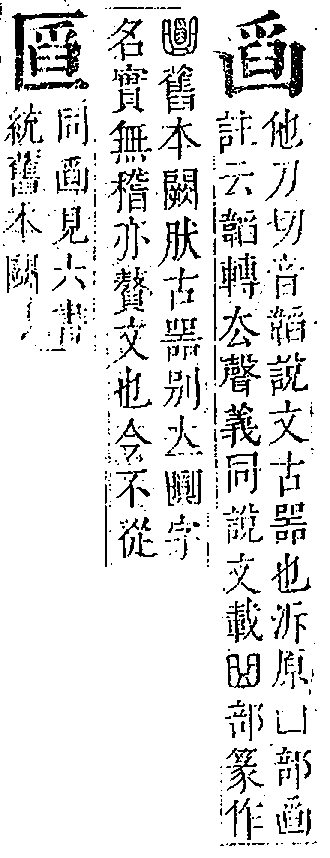 他刀切音韜說文古器也泝原凵部
註云韜轉厺聲義同說文載部篆作
舊本闕肰古器别字
名實無稽亦贅文也今不從
同見六書
統舊本闕